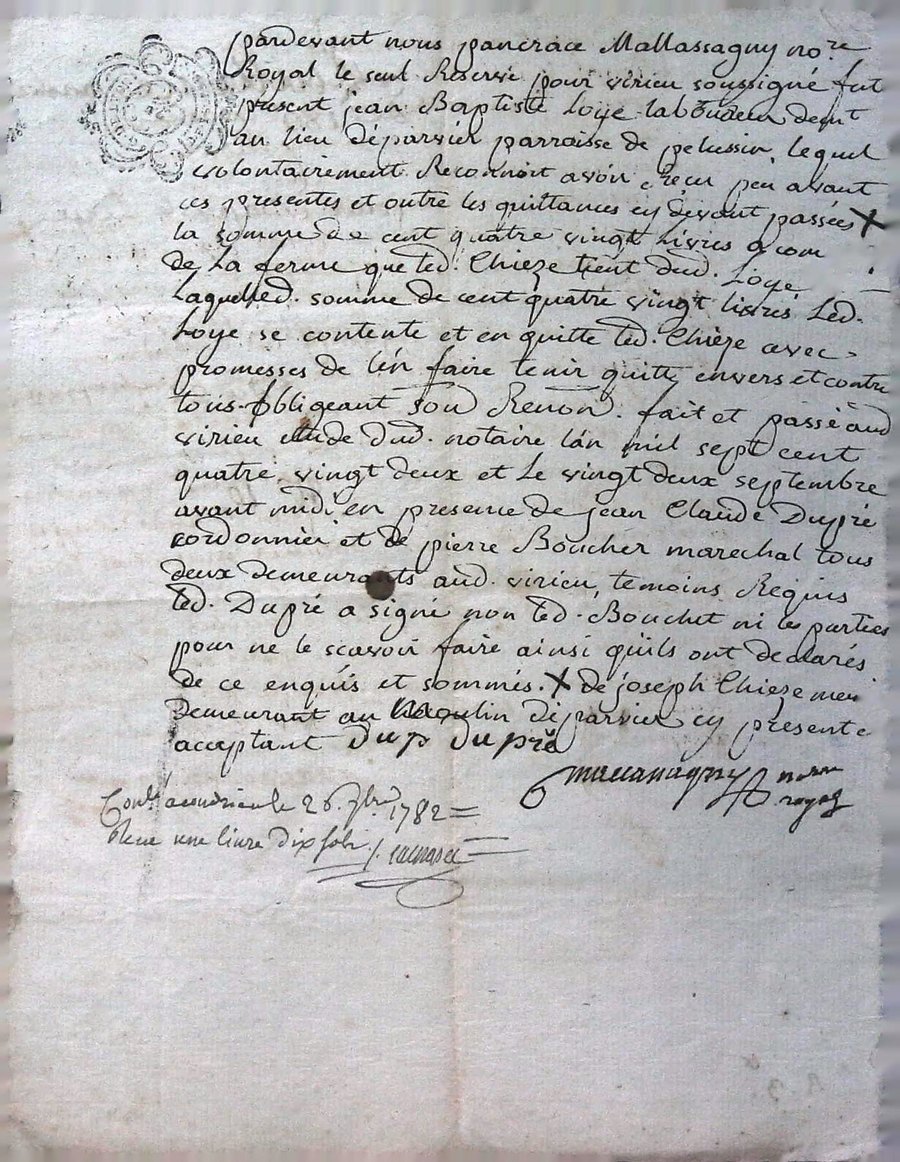 pardevant nous pancrace Mallassagny no.re
Royal le seul Reservé pour virieu soussigné fut
présent jean Baptiste Loye laboureur demt
au lieu déparvier parroisse de pelussin, lequel
volontairement Reconnoit avoir recu peu avant
ces presentes et outre les quittances cy devant passées X
la somme de cent quatre vingt Livres a com
de La ferme que led. Chieze tient dud. Loye
Laquelled. somme de cent quatre vingt livres Led.
Loye se contente et en quitte led. Chièze avec
promesses de l'en faire tenir quitte envers et contre
tous. obligeant soud Renon. fait et passé aud
virieu etude dud. notaire lán mil sept cent
quatre vingt deux et Le vingt deux septembre
avant midi en presence de jean Claude Dupré
cordonnier et de pierre Boucher marechal tous
deux demeurants aud. virieu, temoins Requis
led. Dupré a signé non led. Bouchet ni les parties
pour ne le scavoir faire ainsi qu'ils ont declarés
de ce enquis et sommés. X de joseph Chieze meu
Demeurant au Moulin déparvier cy present e
acceptant dup dupré
nore
royal
le 26. 7bre 1782 =
une livre dix sols